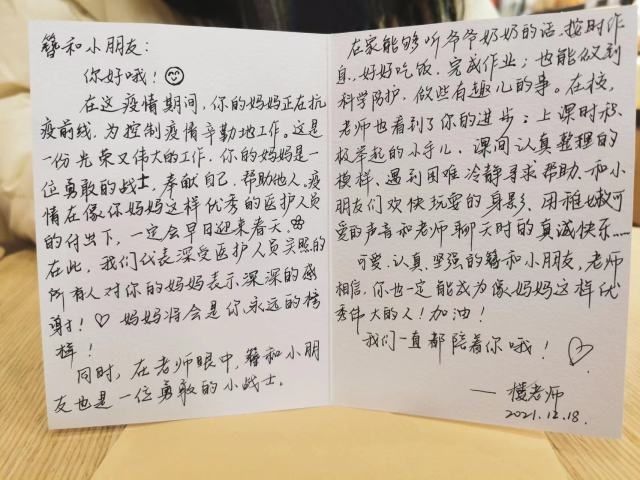 簪和小朋友：
你好哦！
在这疫情期间，你的妈妈正在抗
疫前线，为控制疫情辛勤地工作。这是
一份光荣又伟大的工作，你的妈妈是一
位勇敢的战士，奉献自己，帮助他人。疫
情在像你妈妈这样优秀的医护人员
的付出下，一定会早日迎来春天。
在此，我们代表深受医护人员关照的
所有人对你的妈妈表示深深的感
谢！♡ 妈妈将会是你永远的榜
样！
同时，在老师眼中，簪和小朋
友也是一位勇敢的小战士。
在家能够听爷爷奶奶的话，按时作
息，好好吃饭，完成作业；也能做到
科学防护，做些有趣儿的事。在校，
老师也看到了你的进步：上课时积
极举起的小手儿，课间认真整理的
模样，遇到困难冷静寻求帮助，和小
朋友们欢快玩耍的身影，用稚嫩可
爱的声音和老师聊天时的真诚快乐……
可爱、认真、坚强的簪和小朋友，老师
相信，你也一定能成为像妈妈这样优
秀伟大的人！加油！
我们一直都陪着你哦！♡
——楼老师
2021.12.18.